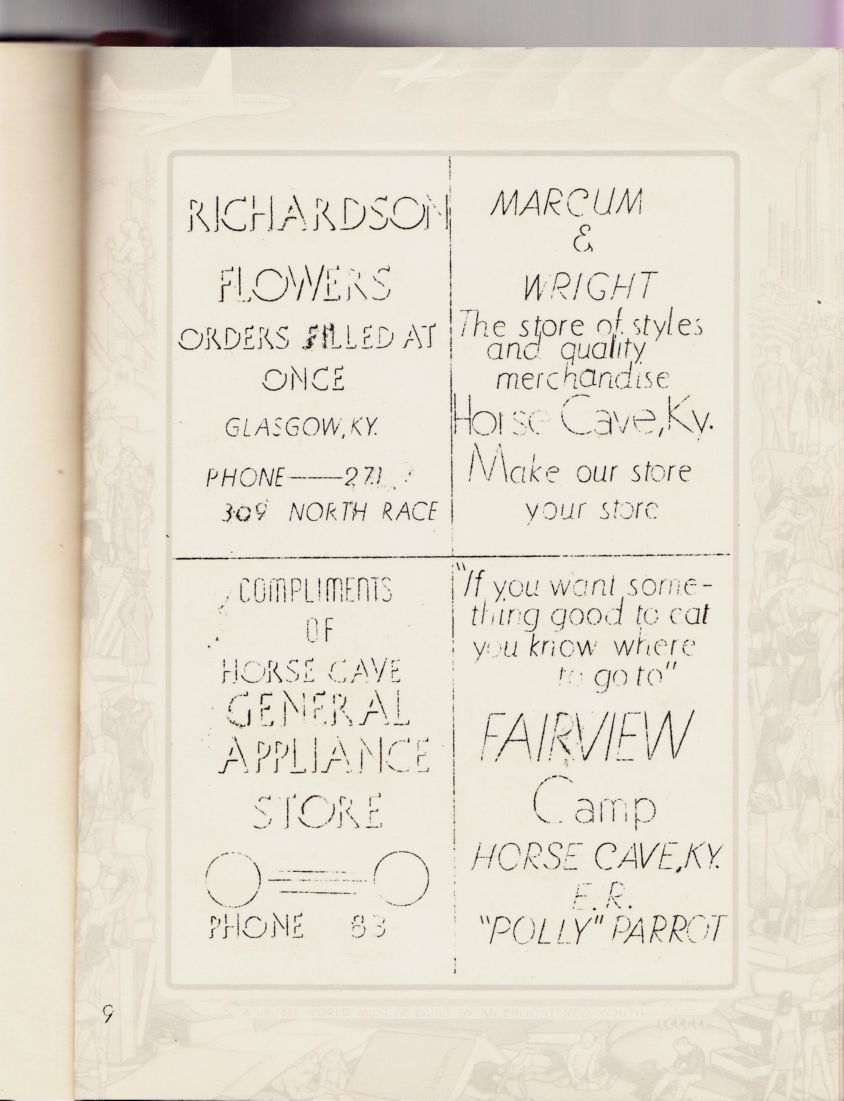 RICHARDSON
FLOWERS
ORDERS FILLED AT
ONCE
GLASGOW, KY.
PHONE——271
309 NORTH RACE
MARCUM
&
WRIGHT
The store of styles
and quality
merchandise
Horse Cave, Ky.
Make our store
your store
COMPLIMENTS
OF
HORSE CAVE
GENERAL
APPLIANCE
STORE
PHONE 83
"If you want some-
thing good to eat
you know where
to go to"
FAIRVIEW
Camp
HORSE CAVE, KY.
E.R.
"POLLY" PARROT
9
A UNITED WORLD MUST BE BUILT BY AN ENLIGHTENED YOUTH